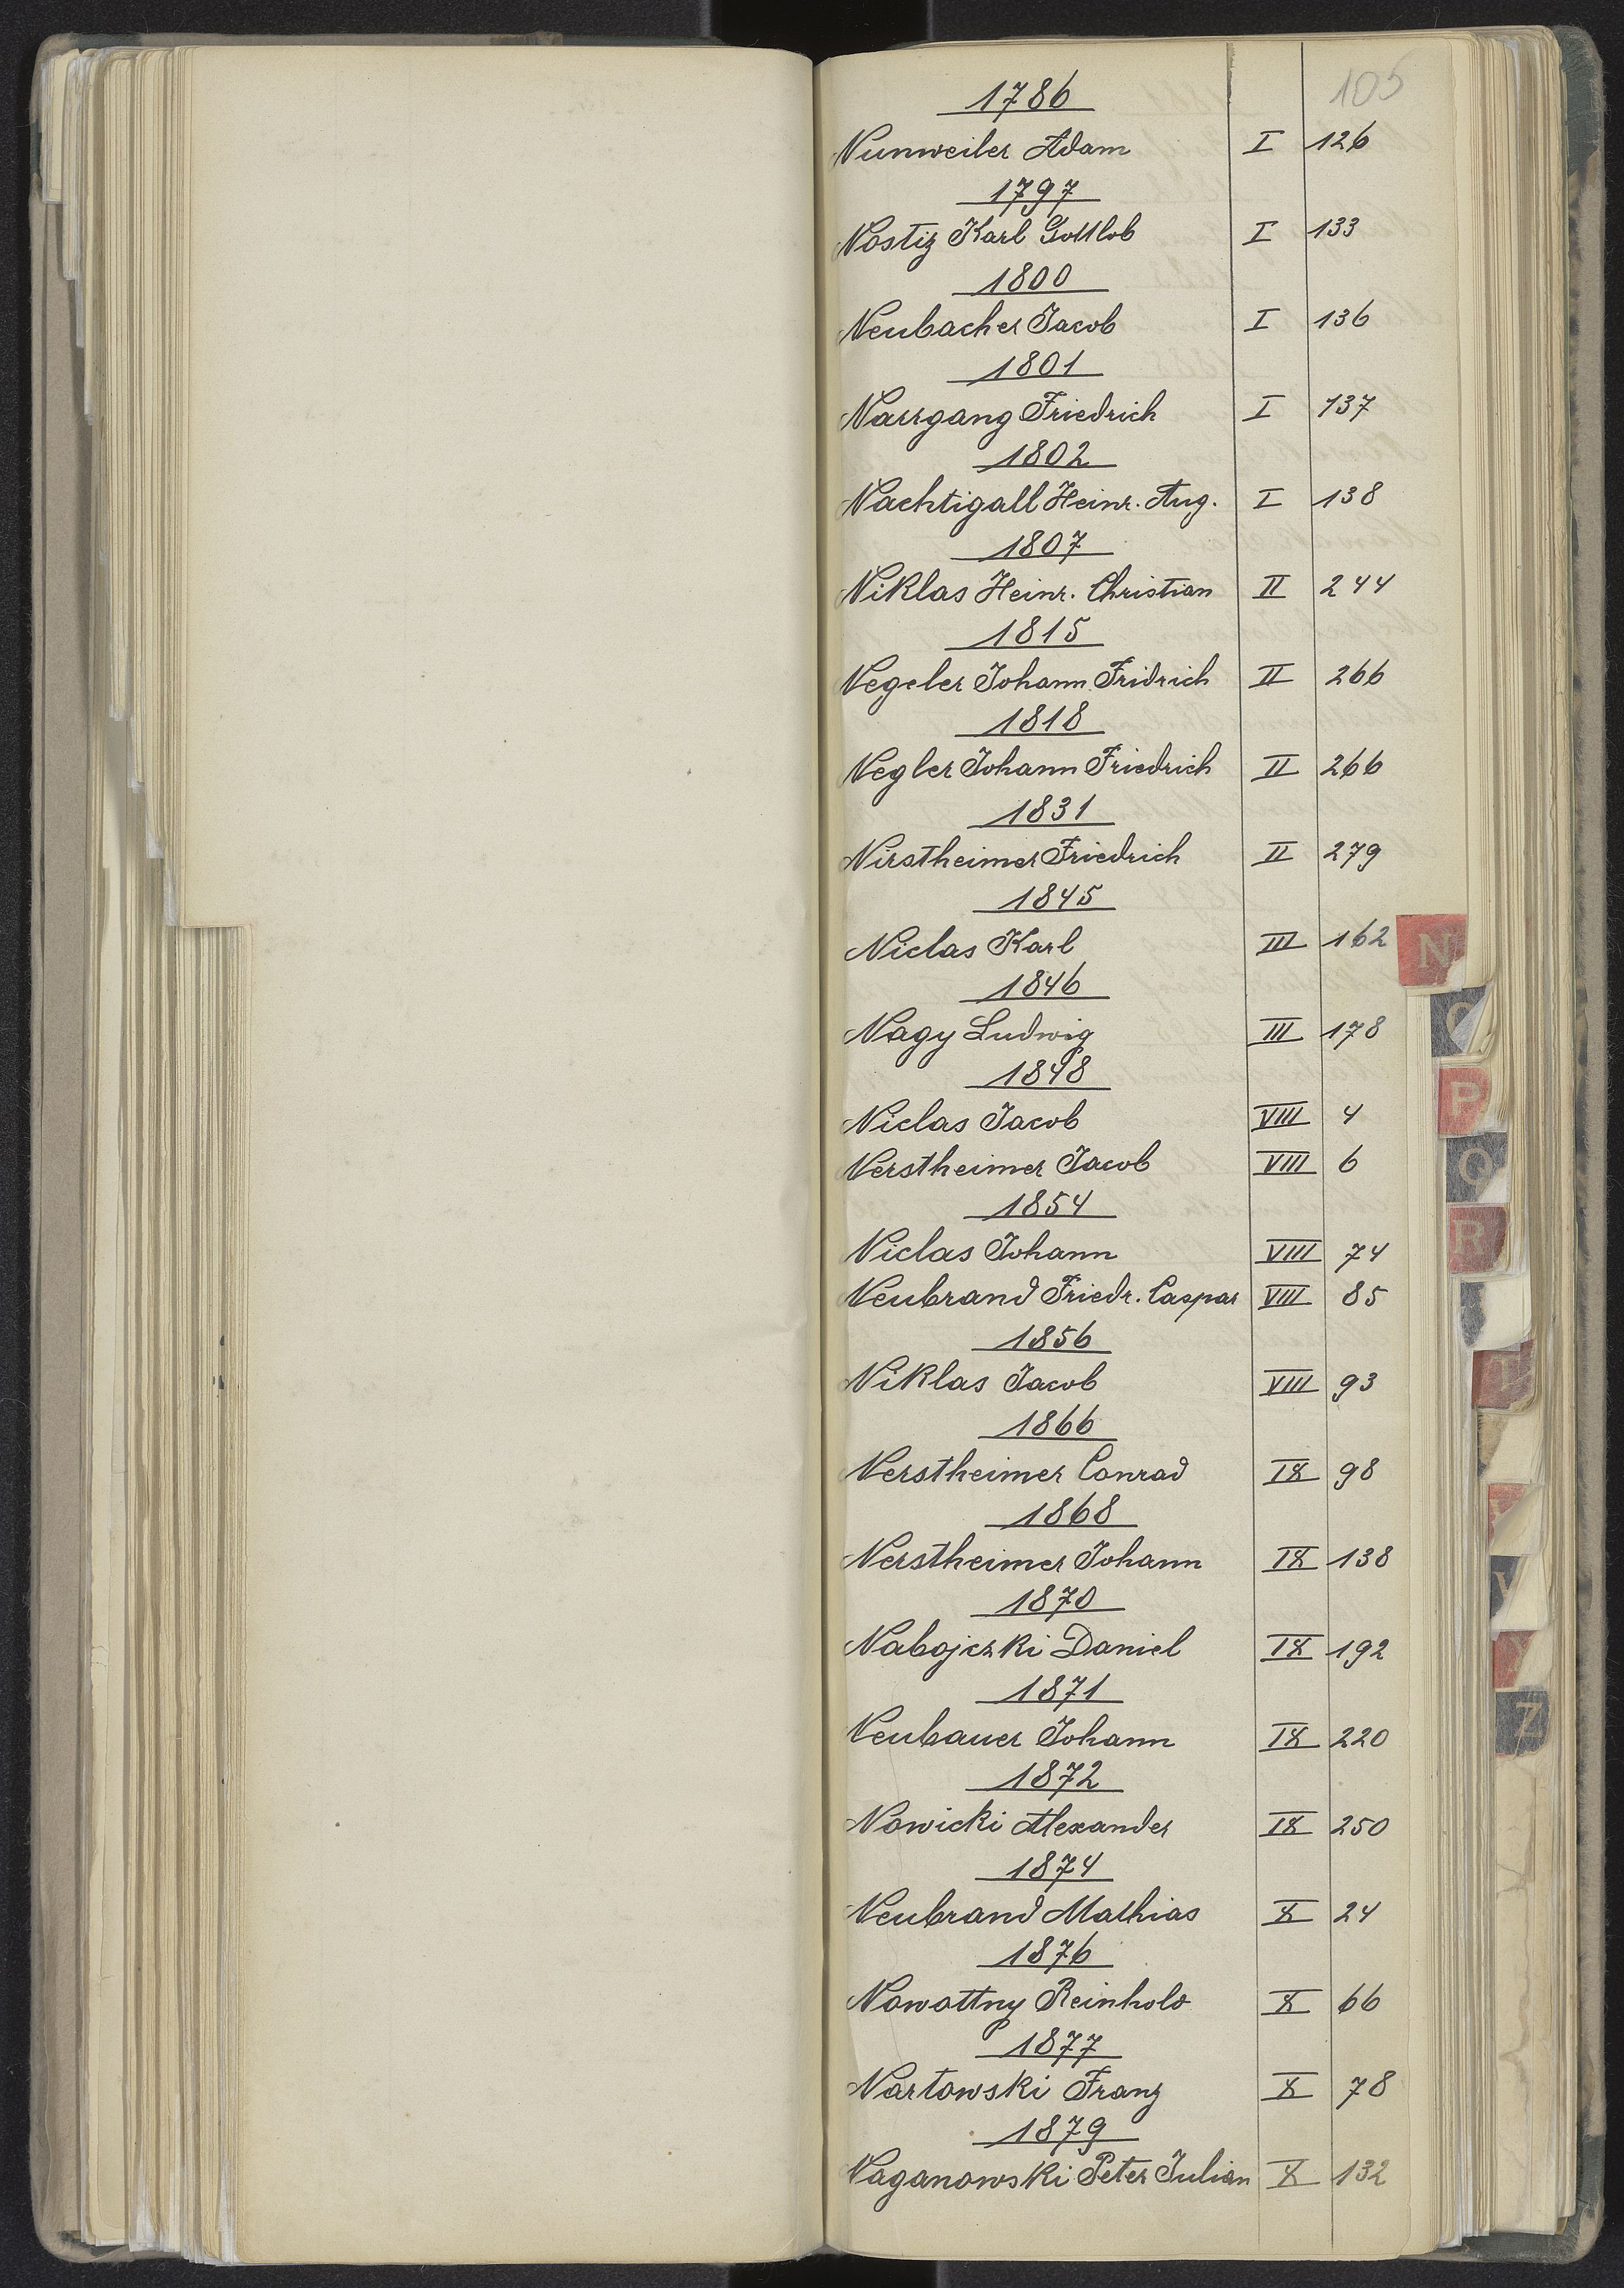 105
1786
Nunweiler Adam I 126
1797
Nostiz Karl Gottlob I 133
1800
Neubacher Jacob I 136
1801
Narrgang Friedrich I 137
1802
Nachtigall Heinr. Aug. I 138
1807
Niklas Heinr. Christian II 244
1815
Negeler Johann Fridrich II 266
1818
Negler Johann Friedrich II 266
1831
Nirstheimer Friedrich II 279
1845
Niclas Karl III 162
1846
Nagy Ludwig III 178
1848
Niclas Jacob VIII 4
Nerstheimer Jacob VIII 6
1854
Niclas Johann VIII 74
Neubrand Friedr. Caspar VIII 85
1856
Niklas Jacob VIII 93
1866
Nerstheimer Conrad IX 98
1868
Nerstheimer Johann IX 138
1870
Nabojczki Daniel IX 192
1871
Neubauer Johann IX 220
1872
Nowicki Alexander IX 250
1874
Neubrand Mathias X 24
1876
Nowottny Reinhold X 66
1877
Nartowski Franz X 78
1879
Naganowski Peter Julian X 132
N
P
Q
R
T
Z